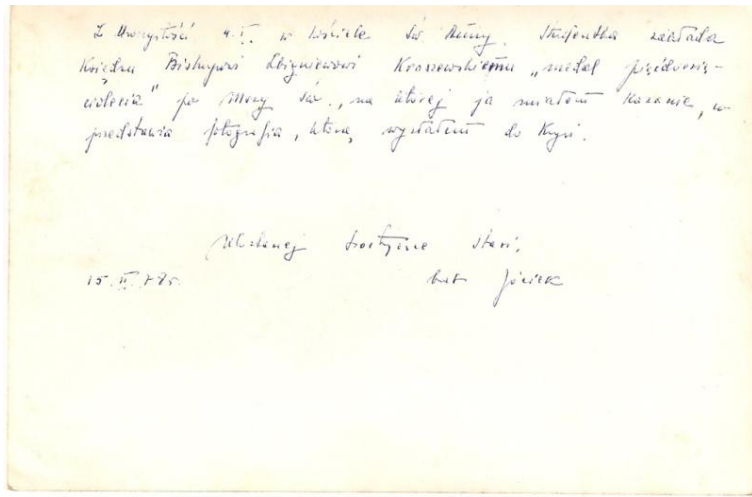 Z Uroczystości 4.I. w kościele Św Anny. Studentka zakłada
Księdzu Biskupowi Zbigniewowi Kraszewskiemu „medal pięćdziesię-
ciolecia" po Mszy św., na której ja miałem Kazanie, co
przedstawia fotografia, którą wysłałem do Krysi.
Ukochanej Siostrzyczce Stasi,
15.II.78r. brat Józiek